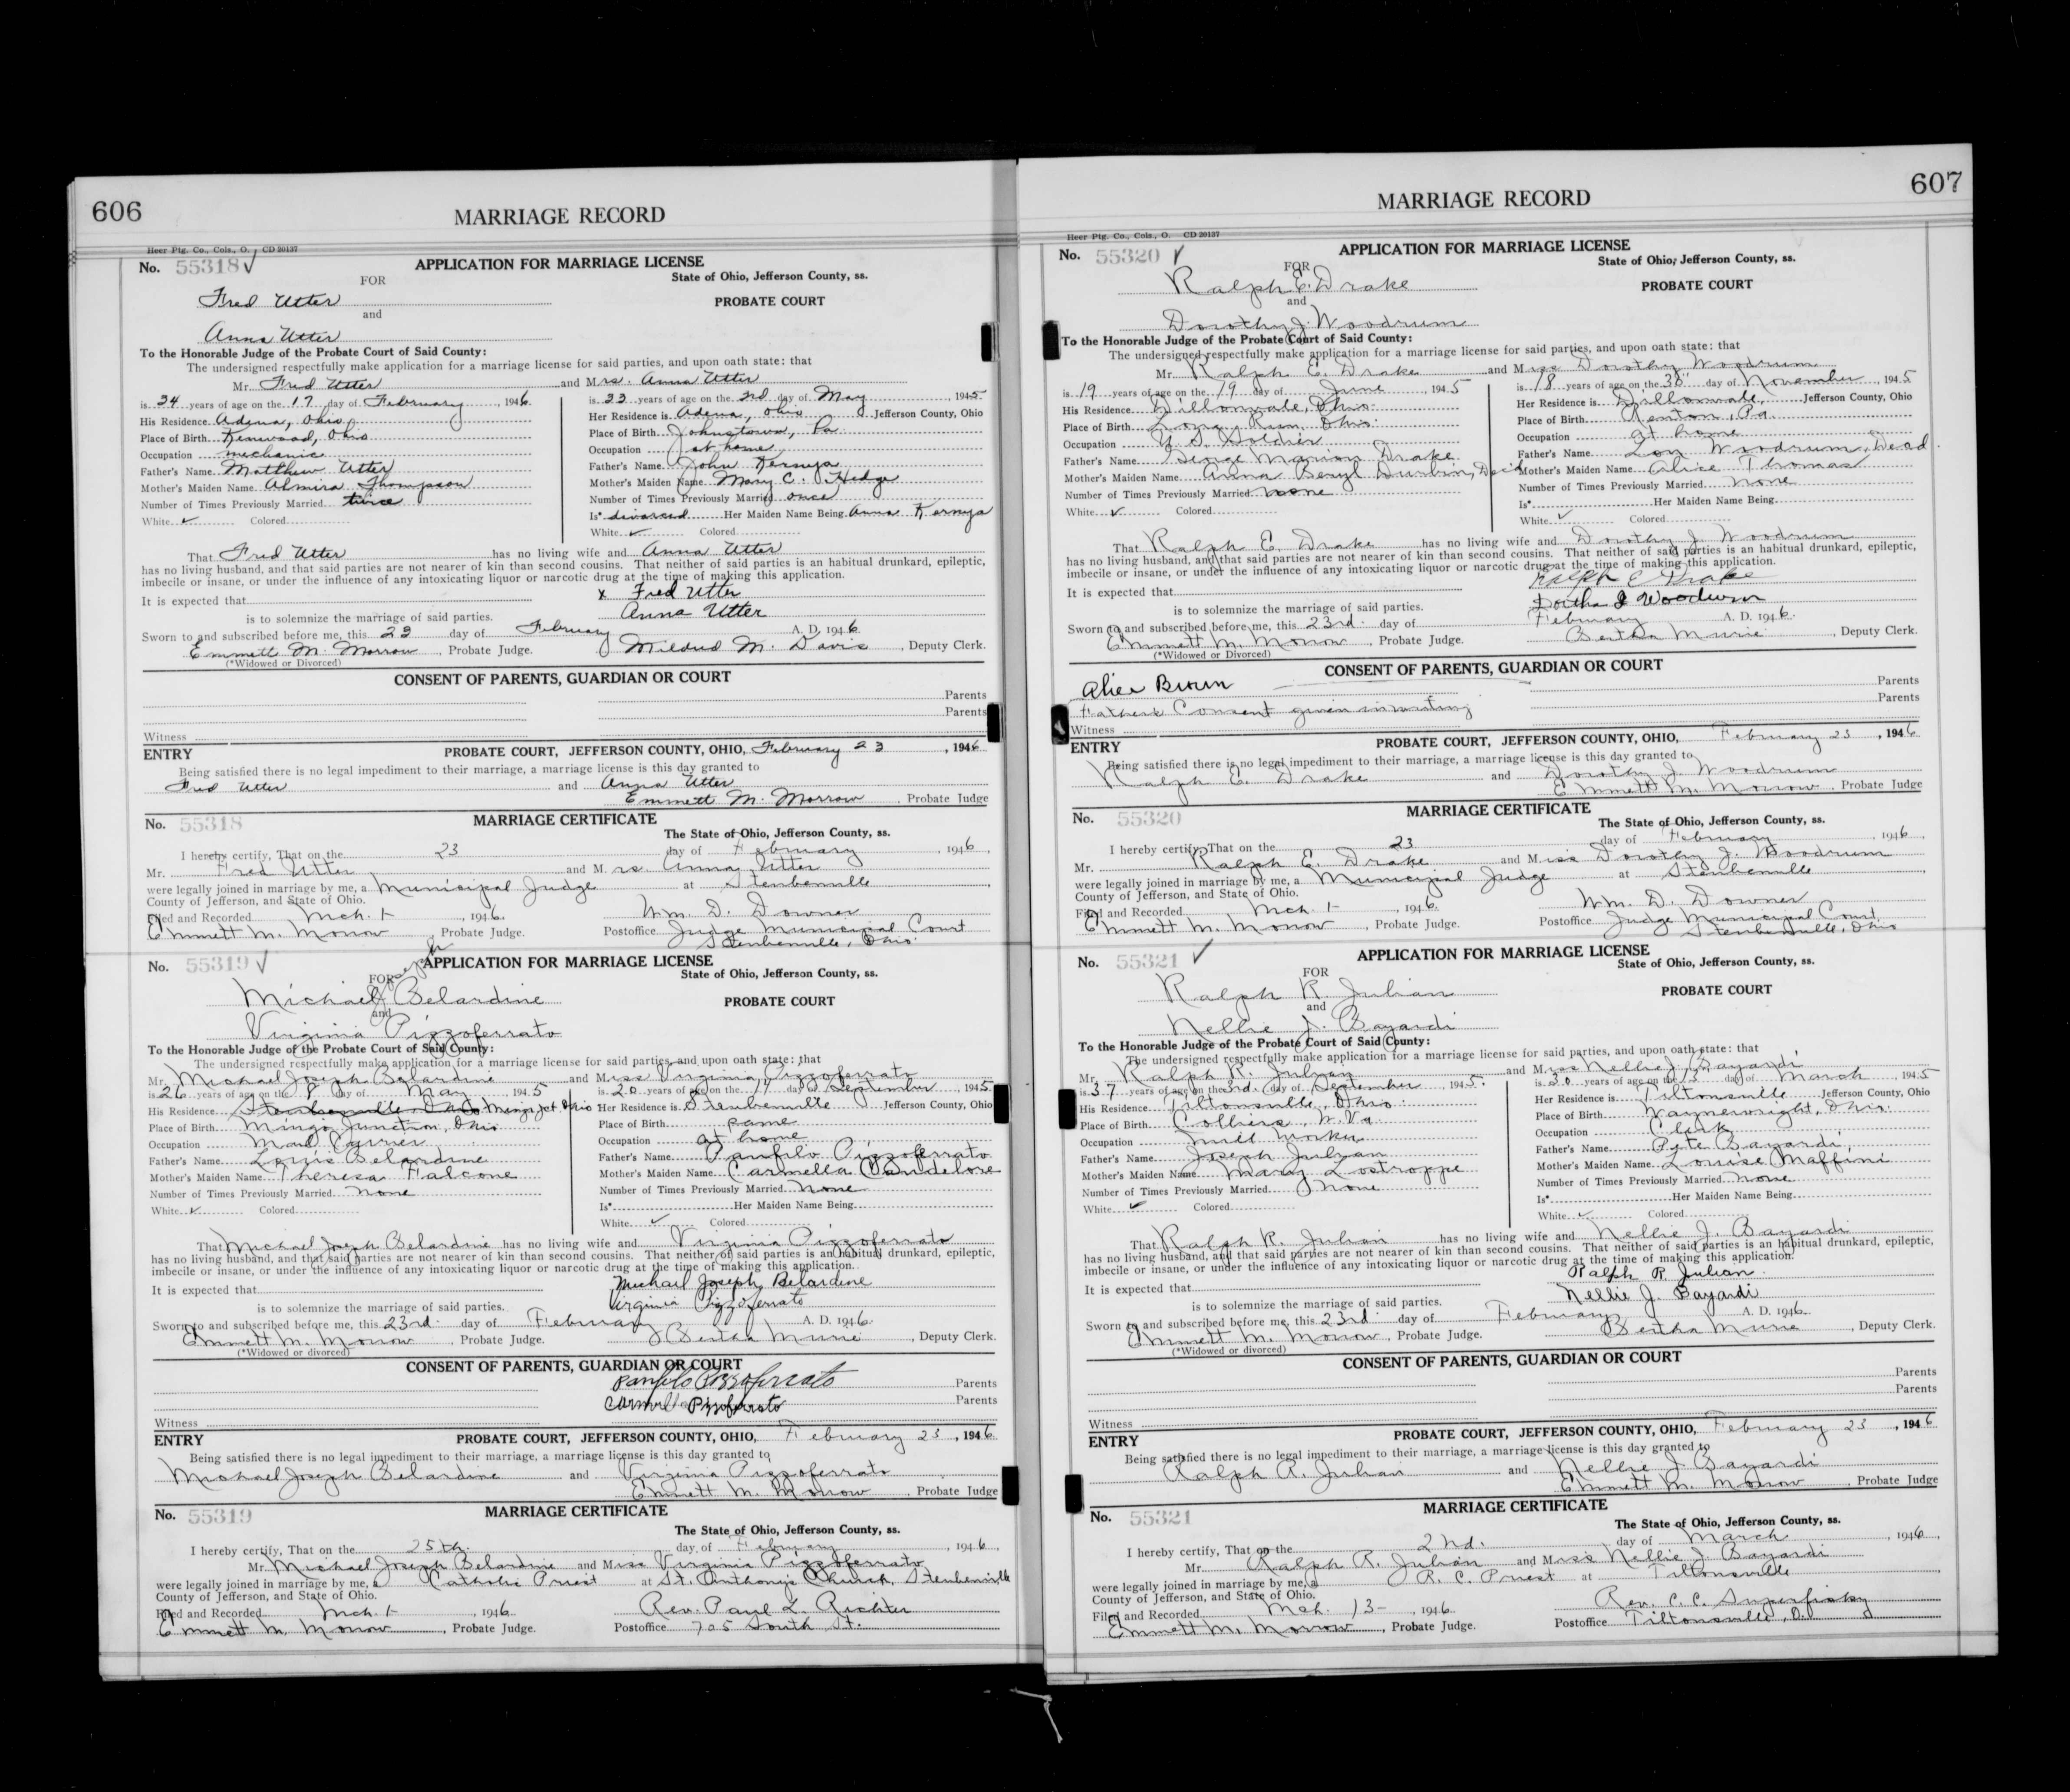 606
MARRIAGE RECORD
Heer Ptg. Co., Cols., O. CD 20137
No. 55318 ✓ APPLICATION FOR MARRIAGE LICENSE
FOR State of Ohio, Jefferson County, ss.
Fred Utter PROBATE COURT
and
Anna Utter
To the Honorable Judge of the Probate Court of Said County:
The undersigned respectfully make application for a marriage license for said parties, and upon oath state: that
Mr. Fred Utter and Mrs. Anna Utter
is 34 years of age on the 17 day of February, 1946
His Residence Adena, Ohio
Place of Birth Kenwood, Ohio
Occupation mechanic
Father's Name Matthew Utter
Mother's Maiden Name Almira Thompson
Number of Times Previously Married twice
White ✓ Colored
is 33 years of age on the 3rd day of May, 1945
Her Residence is Adena, Ohio Jefferson County, Ohio
Place of Birth Johnstown, Pa
Occupation at home
Father's Name John Kernya
Mother's Maiden Name Mary C. Hedge
Number of Times Previously Married once
Is* divorced Her Maiden Name Being Anna Kernya
White ✓ Colored
That Fred Utter has no living wife and Anna Utter
has no living husband, and that said parties are not nearer of kin than second cousins. That neither of said parties is an habitual drunkard, epileptic,
imbecile or insane, or under the influence of any intoxicating liquor or narcotic drug at the time of making this application.
It is expected that x Fred Utter
is to solemnize the marriage of said parties. Anna Utter
Sworn to and subscribed before me, this 23 day of February A. D. 1946
Emmett M. Morrow, Probate Judge. Mildred M. Davis, Deputy Clerk.
(*Widowed or Divorced)
CONSENT OF PARENTS, GUARDIAN OR COURT
Parents
Parents
Witness
ENTRY PROBATE COURT, JEFFERSON COUNTY, OHIO, February 23, 1946
Being satisfied there is no legal impediment to their marriage, a marriage license is this day granted to
Fred Utter and Anna Utter
Emmett M. Morrow, Probate Judge
No. 55318 MARRIAGE CERTIFICATE
The State of Ohio, Jefferson County, ss.
I hereby certify, That on the 23 day of February, 1946,
Mr. Fred Utter and Mrs. Anna Utter
were legally joined in marriage by me, a Municipal Judge at Steubenville
County of Jefferson, and State of Ohio.
Filed and Recorded Mch. 1-, 1946. Wm. D. Downer
Emmett M. Morrow, Probate Judge. Postoffice Judge Municipal Court
Steubenville, Ohio
No. 55319 ✓ APPLICATION FOR MARRIAGE LICENSE
FOR State of Ohio, Jefferson County, ss.
Michael Joseph Belardine PROBATE COURT
and
Virginia Pizzoferrato
To the Honorable Judge of the Probate Court of Said County:
The undersigned respectfully make application for a marriage license for said parties, and upon oath state: that
Mr. Michael Joseph Belardine and Miss Virginia Pizzoferrato
is 26 years of age on the 8 day of May, 1945
His Residence Mingo Jct Ohio
Place of Birth Mingo Junction, Ohio
Occupation Mail Carrier
Father's Name Louis Belardine
Mother's Maiden Name Theresa Falcone
Number of Times Previously Married none
White ✓ Colored
is 20 years of age on the 17 day of September, 1945
Her Residence is Steubenville Jefferson County, Ohio
Place of Birth same
Occupation at home
Father's Name Panfilo Pizzoferrato
Mother's Maiden Name Carmella Candelore
Number of Times Previously Married None
Is* Her Maiden Name Being
White ✓ Colored
That Michael Joseph Belardine has no living wife and Virginia Pizzoferrato
has no living husband, and that said parties are not nearer of kin than second cousins. That neither of said parties is an habitual drunkard, epileptic,
imbecile or insane, or under the influence of any intoxicating liquor or narcotic drug at the time of making this application.
It is expected that Michael Joseph Belardine
is to solemnize the marriage of said parties. Virginia Pizzoferrato
Sworn to and subscribed before me, this 23rd. day of February A. D. 1946.
Emmett M. Morrow, Probate Judge. Bertha Murie, Deputy Clerk.
(*Widowed or divorced)
CONSENT OF PARENTS, GUARDIAN OR COURT
Panfilo Pizzoferrato Parents
Carmella Pizzoferrato Parents
Witness
ENTRY PROBATE COURT, JEFFERSON COUNTY, OHIO, February 23, 1946
Being satisfied there is no legal impediment to their marriage, a marriage license is this day granted to
Michael Joseph Belardine and Virginia Pizzoferrato
Emmett M. Morrow, Probate Judge
No. 55319 MARRIAGE CERTIFICATE
The State of Ohio, Jefferson County, ss.
I hereby certify, That on the 25th. day of February, 1946,
Mr. Michael Joseph Belardine and Miss Virginia Pizzoferrato
were legally joined in marriage by me, a Catholic Priest at St. Anthony's Church, Steubenville
County of Jefferson, and State of Ohio.
Filed and Recorded Mch. 1-, 1946. Rev. Paul L. Richter
Emmett M. Morrow, Probate Judge. Postoffice 705 South St.
607
MARRIAGE RECORD
Heer Ptg. Co., Cols., O. CD 20137
No. 55320 ✓ APPLICATION FOR MARRIAGE LICENSE
FOR State of Ohio, Jefferson County, ss.
Ralph E. Drake PROBATE COURT
and
Dorothy J. Woodrum
To the Honorable Judge of the Probate Court of Said County:
The undersigned respectfully make application for a marriage license for said parties, and upon oath state: that
Mr. Ralph E. Drake and Miss Dorothy Woodrum
is 19 years of age on the 19 day of June, 1945
His Residence Dillonvale, Ohio.
Place of Birth Long Run, Ohio.
Occupation U. S. Soldier
Father's Name George Marion Drake
Mother's Maiden Name Anna Beryl Durbin, Dec'd
Number of Times Previously Married none
White ✓ Colored
is 18 years of age on the 30 day of November, 1945
Her Residence is Dillonvale, Jefferson County, Ohio
Place of Birth Renton, Pa
Occupation at home
Father's Name Lon Woodrum, Dead
Mother's Maiden Name Alice Thomas
Number of Times Previously Married none
Is* Her Maiden Name Being
White ✓ Colored
That Ralph E. Drake has no living wife and Dorothy J. Woodrum
has no living husband, and that said parties are not nearer of kin than second cousins. That neither of said parties is an habitual drunkard, epileptic,
imbecile or insane, or under the influence of any intoxicating liquor or narcotic drug at the time of making this application.
It is expected that Ralph E Drake
is to solemnize the marriage of said parties. J Woodrum
Sworn to and subscribed before me, this 23rd. day of February A. D. 1946.
Emmett M. Morrow, Probate Judge. Bertha Murie, Deputy Clerk.
(*Widowed or Divorced)
CONSENT OF PARENTS, GUARDIAN OR COURT
Alice Parents
Fathers Consent given in writing Parents
Witness
ENTRY PROBATE COURT, JEFFERSON COUNTY, OHIO, February 23, 1946
Being satisfied there is no legal impediment to their marriage, a marriage license is this day granted to
Ralph E. Drake and Dorothy J. Woodrum
Emmett M. Morrow, Probate Judge
No. 55320 MARRIAGE CERTIFICATE
The State of Ohio, Jefferson County, ss.
I hereby certify, That on the 23 day of February, 1946,
Mr. Ralph E. Drake and Miss Dorothy J. Woodrum
were legally joined in marriage by me, a Municipal Judge at Steubenville
County of Jefferson, and State of Ohio.
Filed and Recorded Mch. 1-, 1946. Wm. D. Downer
Emmett M. Morrow, Probate Judge. Postoffice Judge Municipal Court
Steubenville, Ohio
No. 55321 ✓ APPLICATION FOR MARRIAGE LICENSE
FOR State of Ohio, Jefferson County, ss.
Ralph R. Julian PROBATE COURT
and
Nellie J. Bayardi
To the Honorable Judge of the Probate Court of Said County:
The undersigned respectfully make application for a marriage license for said parties, and upon oath state: that
Mr. Ralph R. Julian and Miss Nellie J. Bayardi
is 37 years of age on the 3rd. day of September, 1945.
His Residence Tiltonsville, Ohio.
Place of Birth Colliers, W. Va.
Occupation mill worker
Father's Name Joseph Julian
Mother's Maiden Name Mary Lostroppe
Number of Times Previously Married none
White ✓ Colored
is 30 years of age on the 13 day of March, 1945
Her Residence is Tiltonsville Jefferson County, Ohio
Place of Birth Waynewright, Ohio.
Occupation Clerk
Father's Name Pete Bayardi
Mother's Maiden Name Louise Maffini
Number of Times Previously Married none
Is* Her Maiden Name Being
White ✓ Colored
That Ralph R. Julian has no living wife and Nellie J. Bayardi
has no living husband, and that said parties are not nearer of kin than second cousins. That neither of said parties is an habitual drunkard, epileptic,
imbecile or insane, or under the influence of any intoxicating liquor or narcotic drug at the time of making this application.
It is expected that Ralph R. Julian
is to solemnize the marriage of said parties. Nellie J. Bayardi
Sworn to and subscribed before me, this 23rd. day of February A. D. 1946.
Emmett M. Morrow, Probate Judge. Bertha Murie, Deputy Clerk.
(*Widowed or divorced)
CONSENT OF PARENTS, GUARDIAN OR COURT
Parents
Parents
Witness
ENTRY PROBATE COURT, JEFFERSON COUNTY, OHIO, February 23, 1946
Being satisfied there is no legal impediment to their marriage, a marriage license is this day granted to
Ralph R. Julian and Nellie J. Bayardi
Emmett M. Morrow, Probate Judge
No. 55321 MARRIAGE CERTIFICATE
The State of Ohio, Jefferson County, ss.
I hereby certify, That on the 2nd. day of March, 1946,
Mr. Ralph R. Julian and Miss Nellie J. Bayardi
were legally joined in marriage by me, a R. C. Priest at Tiltonsville
County of Jefferson, and State of Ohio.
Filed and Recorded Mch. 13-, 1946. Rev. C. C.
Emmett M. Morrow, Probate Judge. Postoffice Tiltonsville, O.